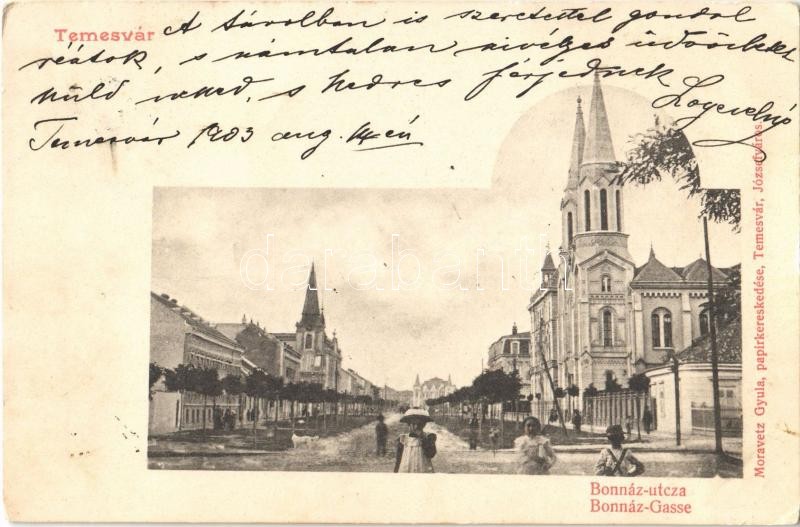 Temesvár
A távolban is szeretettel gondol
reátok, s számtalan szívélyes üdvözletet
küld neked, s kedves férjednek
Temesvár 1903 aug. 14én
darabanth
Moravetz Gyula, papirkereskedése, Temesvár, Józsefváros
Bonnáz-utcza
Bonnáz-Gasse